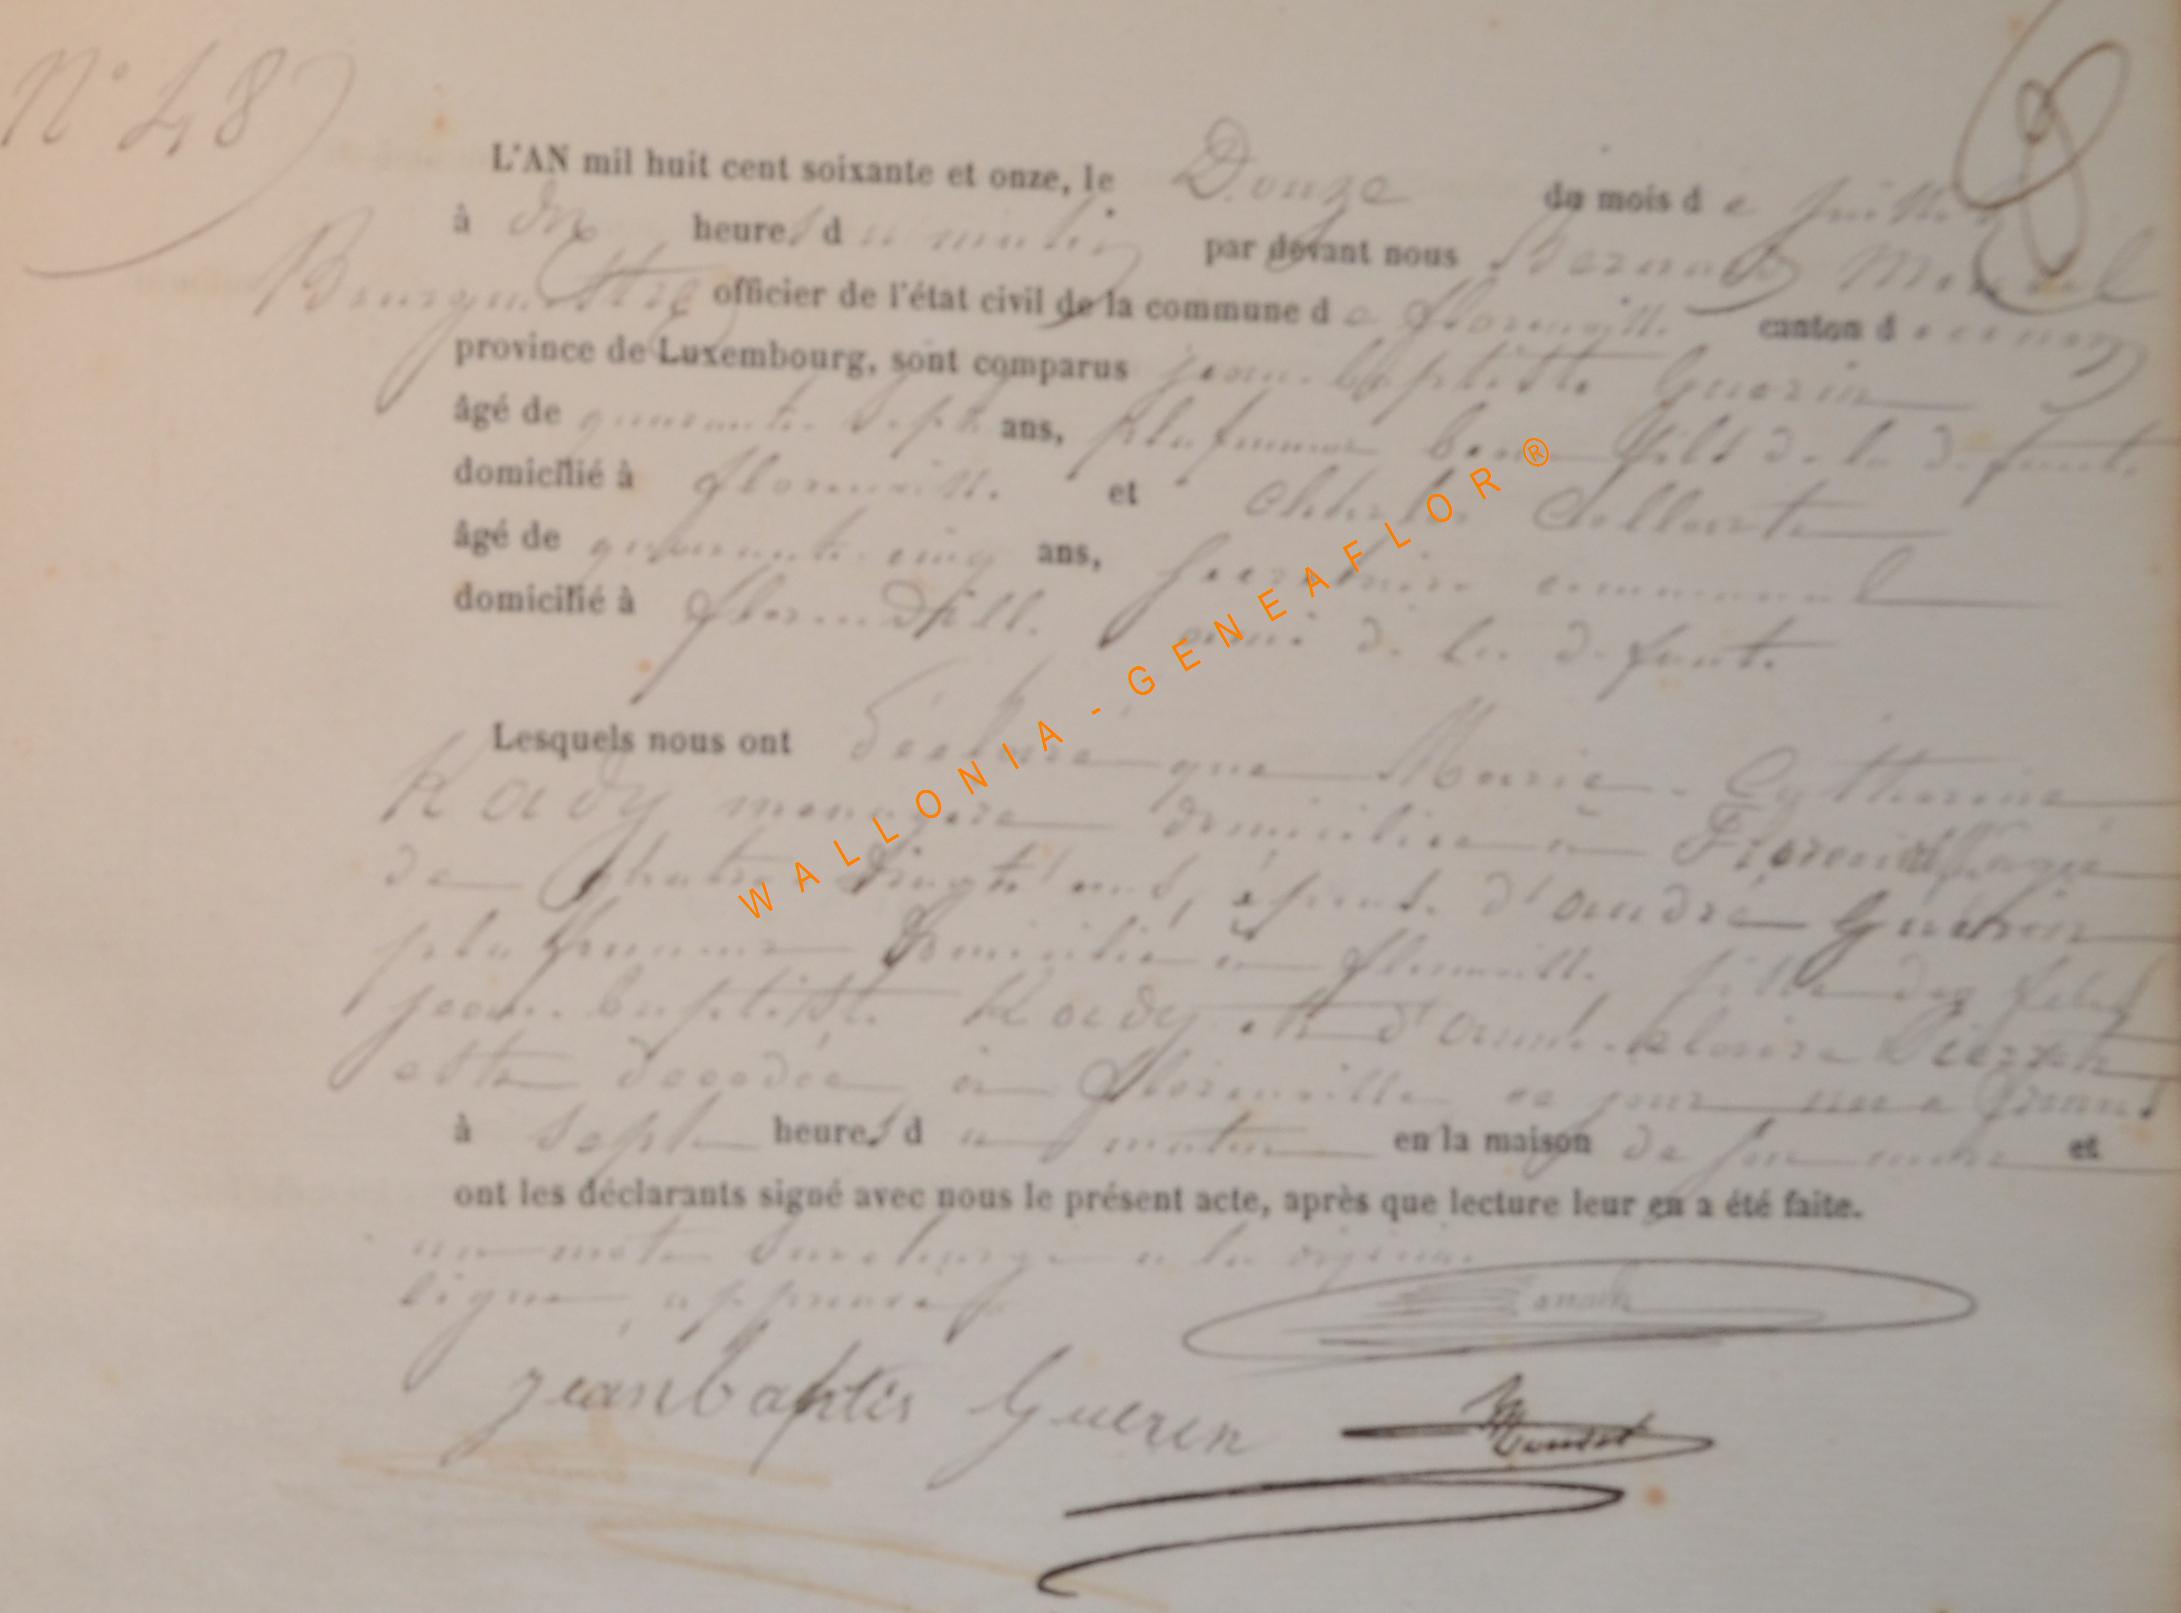 N° 48
L'AN mil huit cent soixante et onze, le Douze du mois de juillet
à dix heures du matin par devant nous Bernard
Bourgmestre officier de l'état civil de la commune de florenville canton d
province de Luxembourg, sont comparus jean-baptiste Guerin
âgé de quarante sept ans, plafonneur beau fils de la defunte
domicilié à florenville et Charles Collart
âgé de quarante cinq ans, secretaire communal
domicilié à florenville ami de la defunte
Lesquels nous ont déclaré que Marie-Catherine
Kady menagere domiciliée à Florenville agée
de quatre vingt ans, épouse d'andré Guérin
plafonneur domicilié à florenville fille des feus
jean-baptiste Kady et d'anne
est decedée à florenville ce jour
à sept heures du matin en la maison de son et
ont les déclarants signé avec nous le présent acte, après que lecture leur en a été faite.
un mot surchargé a la
ligne, approuvé
jean baptis Guerin
WALLONIA - GENEAFLOR ®